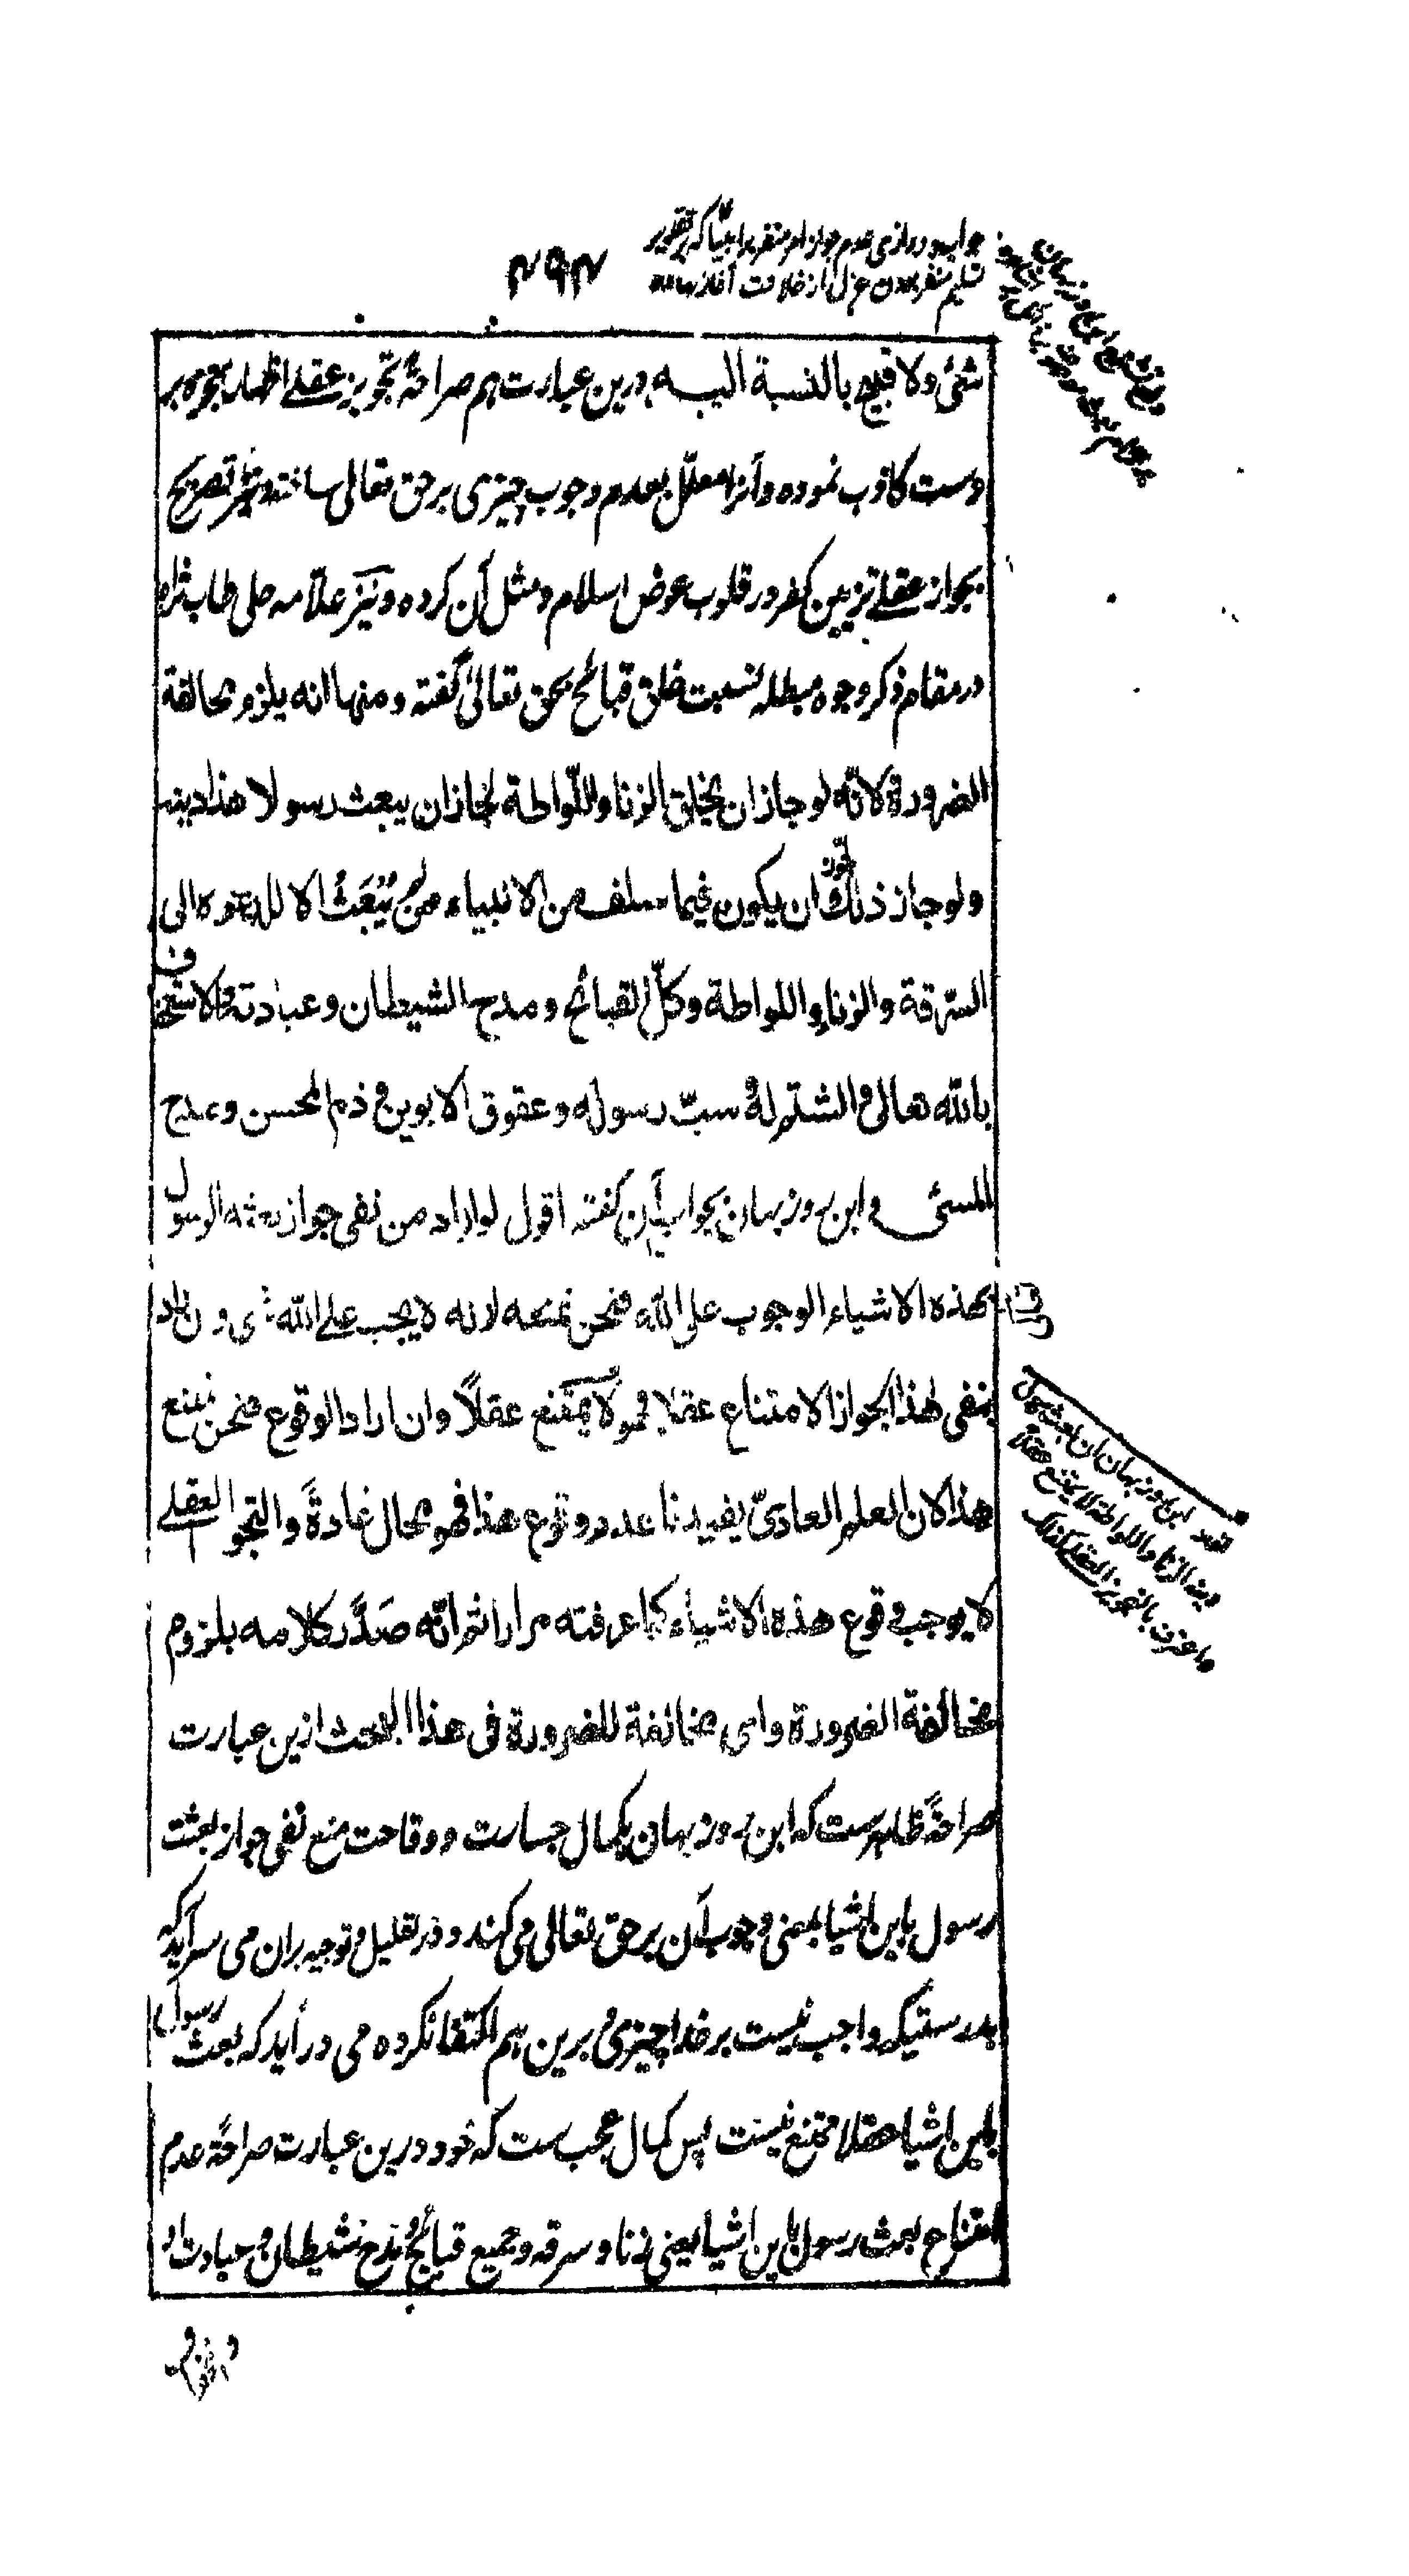 جواب دوازدهم عدم جواز امر منفر بر انبیا که بتقدیر
تسلیم منفر بودن عزل از خلافت
۴۹۴
شئ ولا قبیح بالنسبة الیه درین عبارت هم صراحةً تجویز عقلی اظهار معجزه بر
دست کاذب نموده و آنرا معلّل بعدم وجوب چیزی بر حق تعالی ساخته و نیز تصریح
بجواز عقلی تزیین کفر در قلوب عوض اسلام و مثل آن کرده و نیز علّامه حلی طاب ثراه
در مقام ذکر وجوه مبطله نسبت خلق قبائح بحق تعالیٰ گفته و منها انه یلزم مخالفة
الضرورة لانّه لو جاز ان یخلق الزنا واللّواطة لجاز ان یبعث رسولا هذا دینه
ولو جاز ذلك لجوز ان یکون فیما سلف من الانبیاء من لم یُبعَث الا للدعوه الی
السّرقة والزناء واللواطة وکلّ القبائح ومدح الشیطان وعبادته والاستخفاف
بالله تعالی والشتم له وسبّ رسوله وعقوق الابوین وذم المحسن ومدح
المسئ و ابن روزبهان بجواب آن گفته اقول لو اراد من نفی جواز بعثه الرسول
بهذه الاشیاء الوجوب علی الله فنحن نمنعه لانه لا یجب علی الله شئ وان اراد
بنفی هذا الجواز الامتناع عقلا فهو لا یمتنع عقلاً وان اراد الوقوع فنحن نمنع
هذا لان العلم العادیّ یفیدنا عدم وقوع هذا فهو محال عادةً والتجویز العقلی
لا یوجب وقوع هذه الاشیاء کما عرفته مرارا ثم انّه صَدَّر کلامه بلزوم
مخالفة الضرورة وای مخالفة للضرورة فی هذا المبحث ازین عبارت
صراحةً ظاهرست که ابن روزبهان بکمال جسارت و وقاحت منع نفی جواز بعثت
رسول باین اشیا بمعنی وجوب آن بر حق تعالی می کند و در تعلیل و توجیه بران می سراید که
بدرستیکه واجب نیست بر خدا چیزی و برین هم اکتفا نکرده می در اید که بعث رسول
باین اشیا عقلا ممتنع نیست پس کمال عجب ست که خود درین عبارت صراحةً عدم
امتناع بعث رسول باین اشیا یعنی زنا و سرقه و جمیع قبائح و مدح شیطان و عبادت او